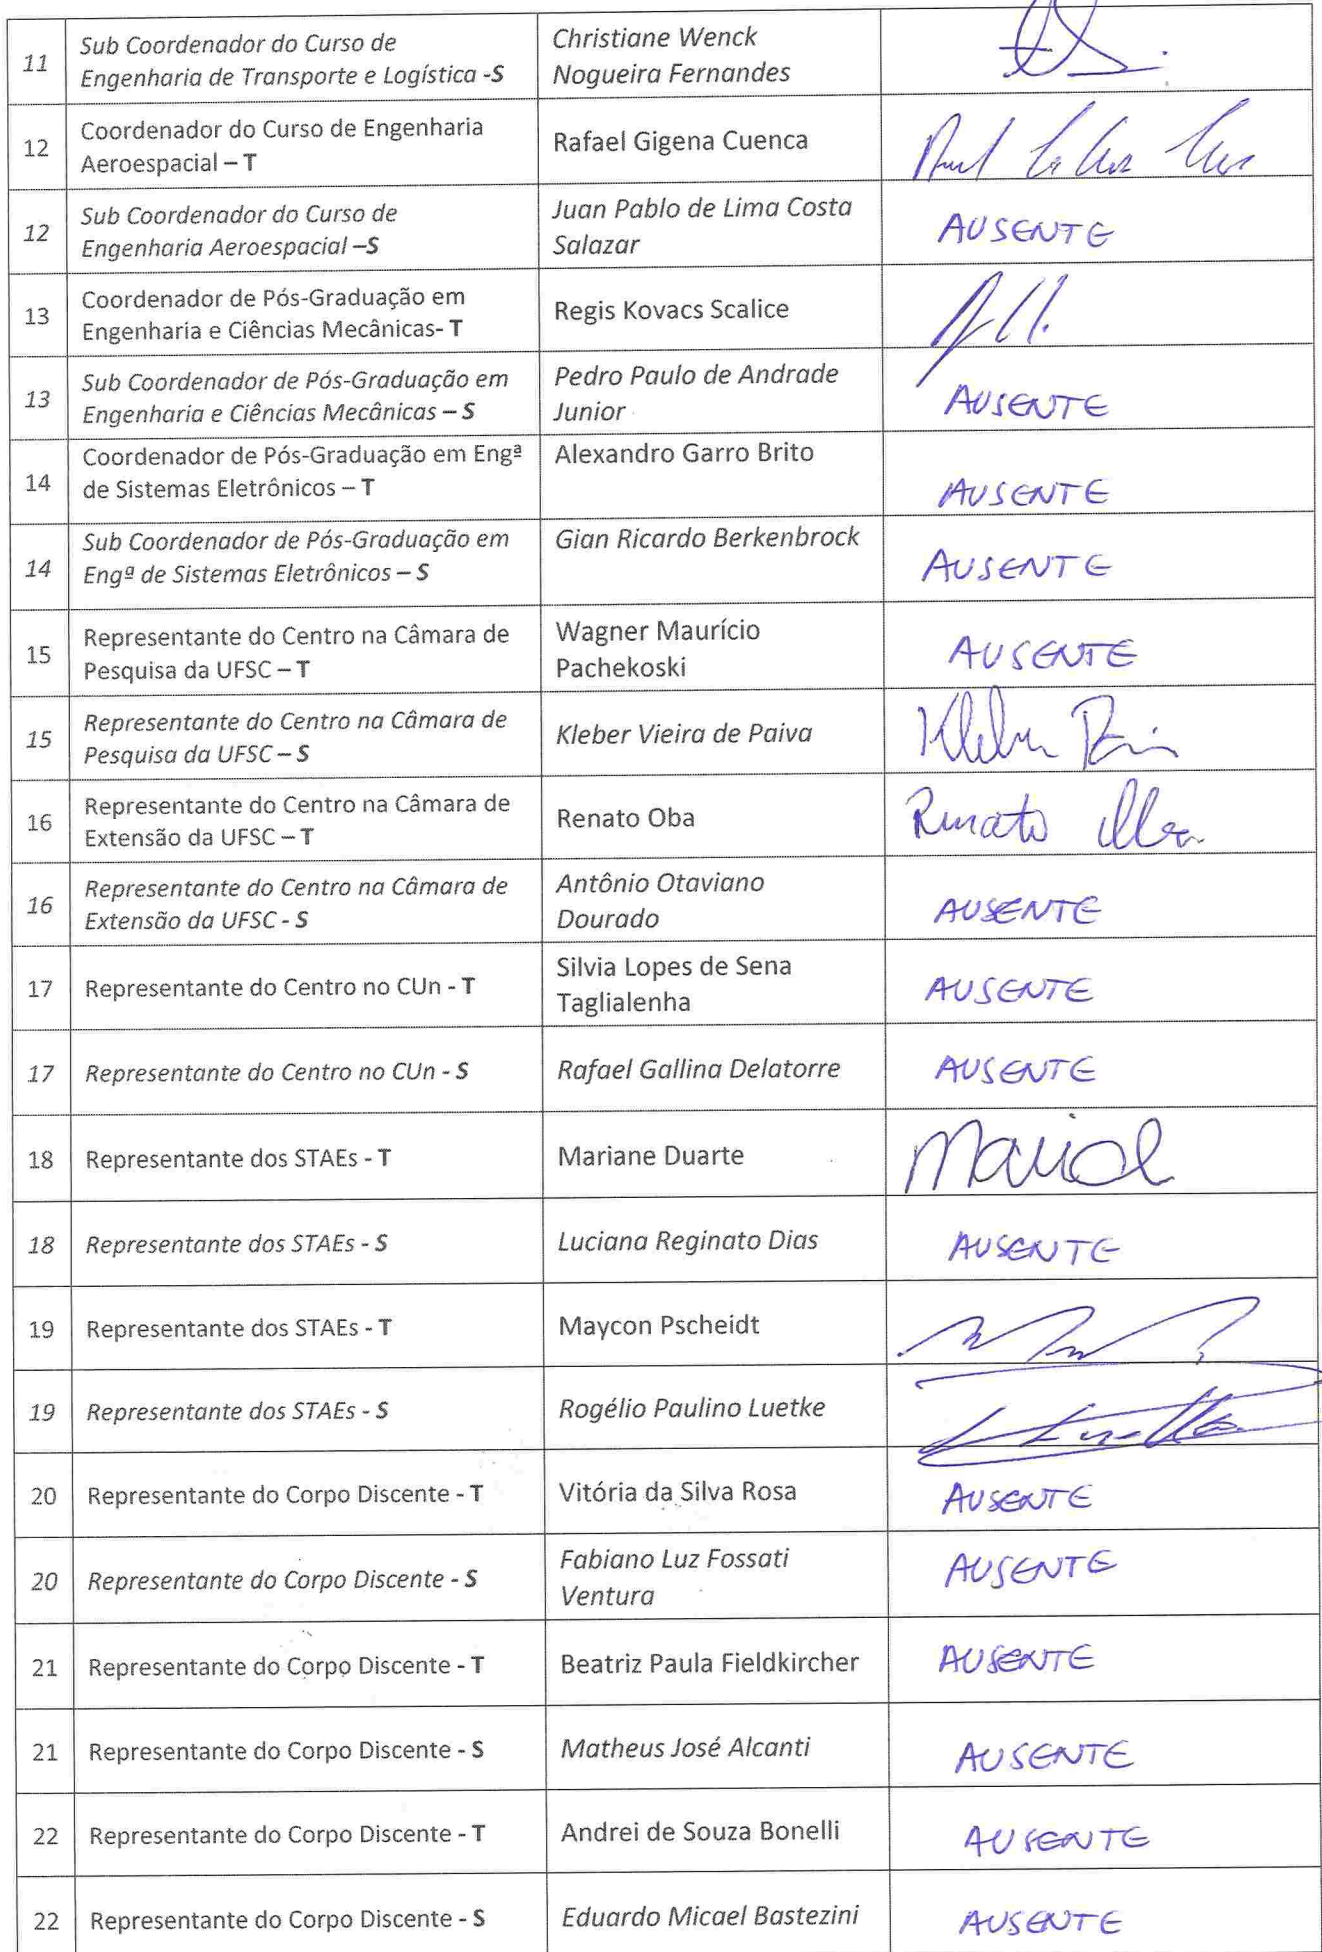 11
Sub Coordenador do Curso de
Engenharia de Transporte e Logística -S
Christiane Wenck
Nogueira Fernandes
12
Coordenador do Curso de Engenharia
Aeroespacial – T
Rafael Gigena Cuenca
12
Sub Coordenador do Curso de
Engenharia Aeroespacial –S
Juan Pablo de Lima Costa
Salazar
AUSENTE
13
Coordenador de Pós-Graduação em
Engenharia e Ciências Mecânicas- T
Regis Kovacs Scalice
13
Sub Coordenador de Pós-Graduação em
Engenharia e Ciências Mecânicas – S
Pedro Paulo de Andrade
Junior
AUSENTE
14
Coordenador de Pós-Graduação em Engª
de Sistemas Eletrônicos – T
Alexandro Garro Brito
AUSENTE
14
Sub Coordenador de Pós-Graduação em
Engª de Sistemas Eletrônicos – S
Gian Ricardo Berkenbrock
AUSENTE
15
Representante do Centro na Câmara de
Pesquisa da UFSC – T
Wagner Maurício
Pachekoski
AUSENTE
15
Representante do Centro na Câmara de
Pesquisa da UFSC – S
Kleber Vieira de Paiva
Kleber
16
Representante do Centro na Câmara de
Extensão da UFSC – T
Renato Oba
Renato
16
Representante do Centro na Câmara de
Extensão da UFSC - S
Antônio Otaviano
Dourado
AUSENTE
17
Representante do Centro no CUn - T
Silvia Lopes de Sena
Taglialenha
AUSENTE
17
Representante do Centro no CUn - S
Rafael Gallina Delatorre
AUSENTE
18
Representante dos STAEs - T
Mariane Duarte
18
Representante dos STAEs - S
Luciana Reginato Dias
AUSENTE
19
Representante dos STAEs - T
Maycon Pscheidt
19
Representante dos STAEs - S
Rogélio Paulino Luetke
20
Representante do Corpo Discente - T
Vitória da Silva Rosa
AUSENTE
20
Representante do Corpo Discente - S
Fabiano Luz Fossati
Ventura
AUSENTE
21
Representante do Corpo Discente - T
Beatriz Paula Fieldkircher
AUSENTE
21
Representante do Corpo Discente - S
Matheus José Alcanti
AUSENTE
22
Representante do Corpo Discente - T
Andrei de Souza Bonelli
AUSENTE
22
Representante do Corpo Discente - S
Eduardo Micael Bastezini
AUSENTE